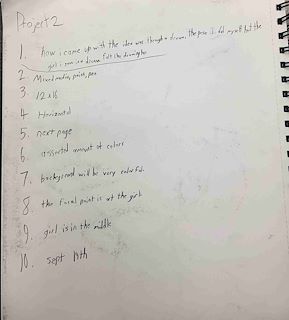 Project 2
1. how i came up with the idea was through a dream. the pose i did myself but the
girl i seen in a dream felt like drawing her
2. Mixed media, paint, pen
3. 12x18
4. Horizontal
5. next page
6. assorted amount of colors
7. background will be very colorful.
8. the focal point is at the girl
9. girl is in the middle
10. sept 19th